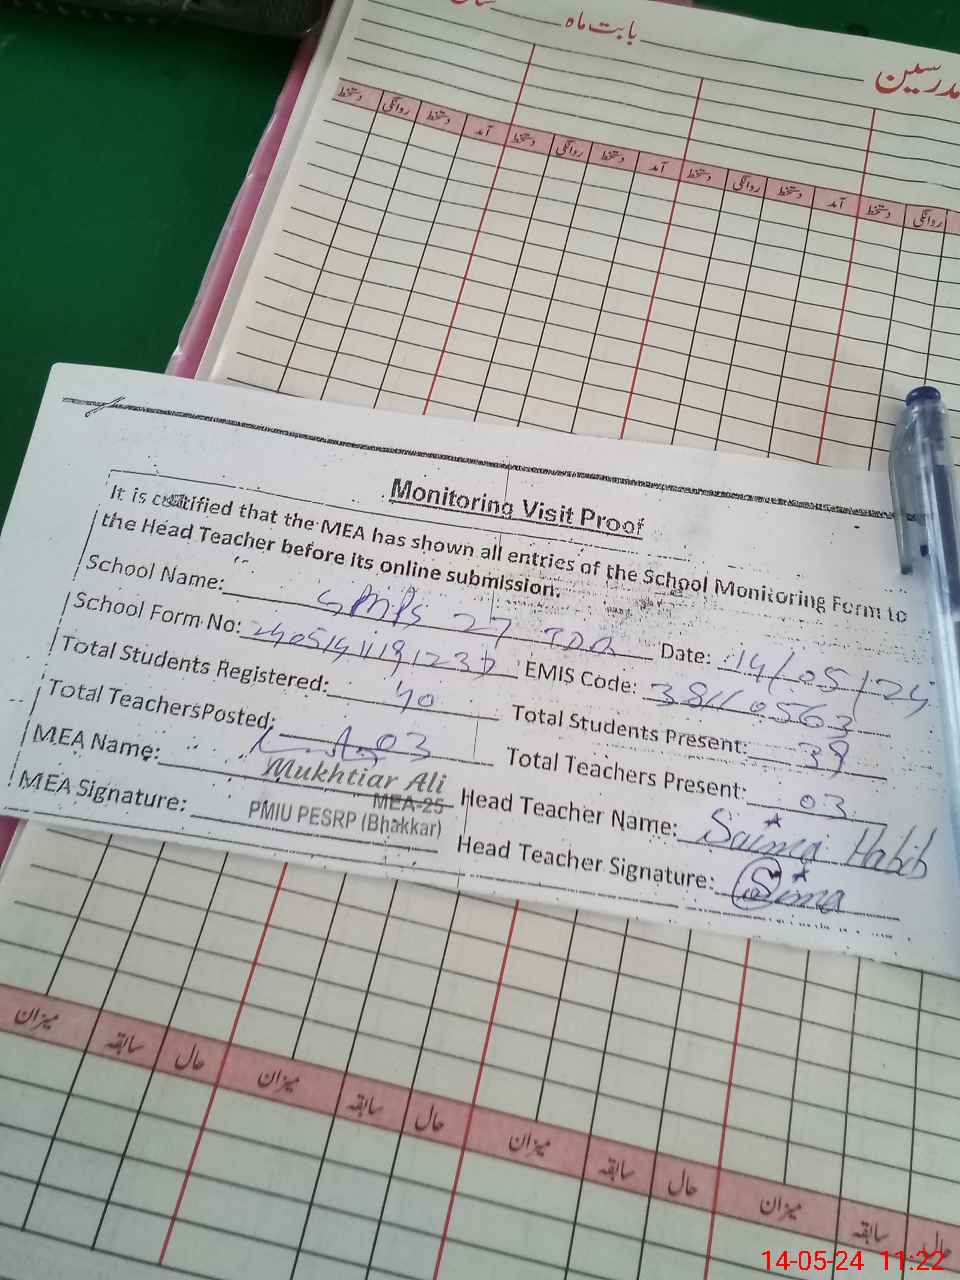 بابت ماہ
مدرسین
دستخط روانگی دستخط آمد دستخط روانگی دستخط آمد دستخط روانگی دستخط آمد دستخط روانگی
Monitoring Visit Proof
It is certified that the MEA has shown all entries of the School Monitoring Form to
the Head Teacher before its online submission.
School Name: GMPS 27 TDA Date: 14/05/24
School Form No: EMIS Code: 38110563
Total Students Registered: 40 Total Students Present: 39
Total TeachersPosted: 03 Total Teachers Present: 03
MEA Name: Mukhtiar Ali Head Teacher Name: Saima Habib
MEA-25
MEA Signature: PMIU PESRP (Bhakkar) Head Teacher Signature: Saima
میزان سابقہ حال میزان سابقہ حال میزان سابقہ حال میزان سابقہ حال
14-05-24 11:22